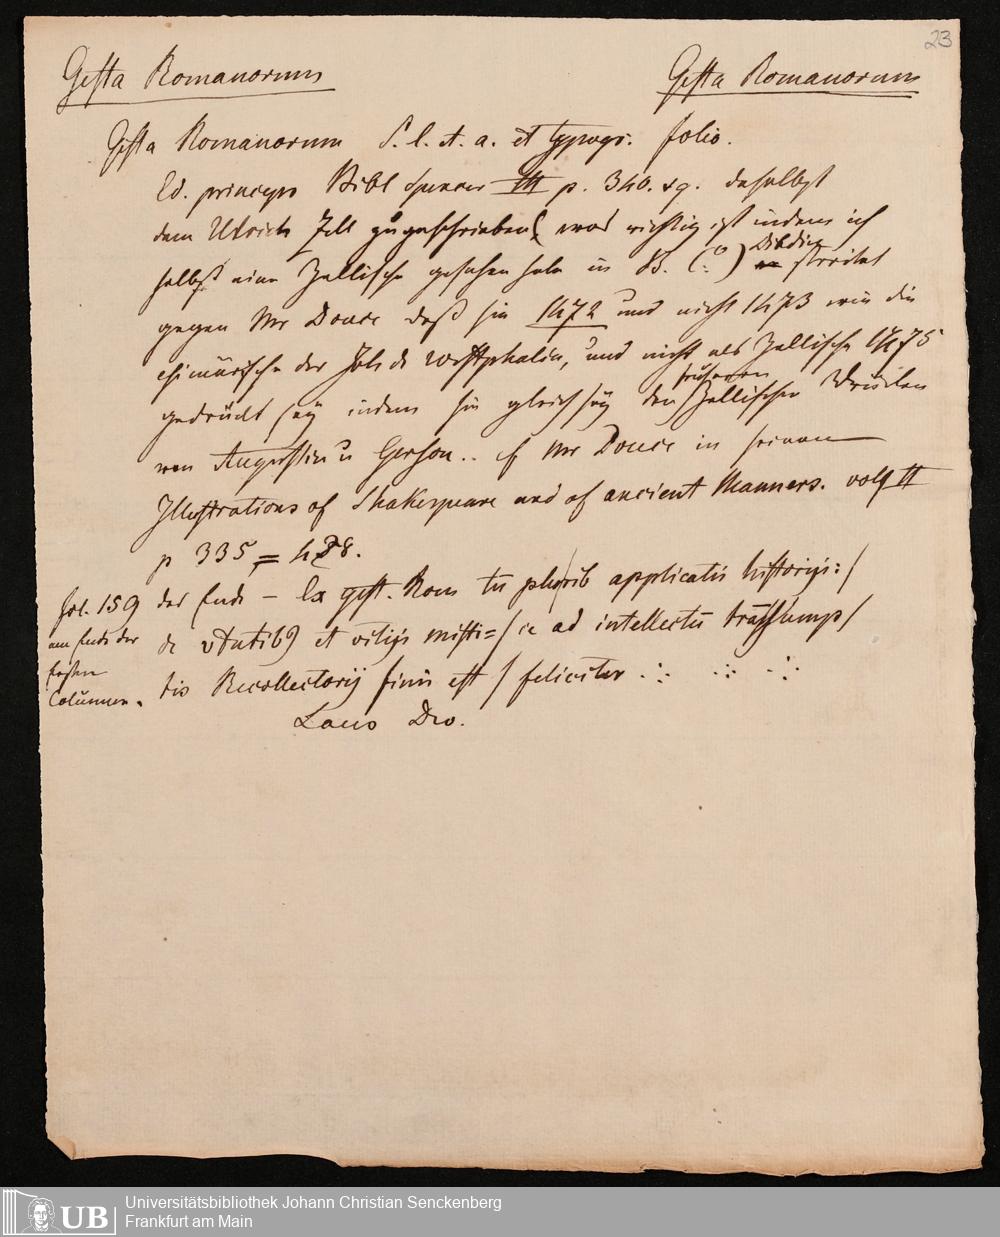 23
Gesta Romanorum
Gesta Romanorum
Gesta Romanorum S. l. et. a. et typogr. folio.
Ed. princeps Bibl Spencer III p. 340. sq. daselbst
dem Ulrich Zell zugeschrieben was richtig ist indem ich
selbst eine Zellische gesehen habe in B. Dibdin streitet
gegen Mr Douce daß sie 1472 und nicht 1473 wie die
chimärische der Joh de Westphalia, und nicht als Zellische 1475
gedruckt sey indem sie gleich sey den früheren Zellischen Drucken
von Augustin u Gerson.. cf Mr Douce in seinen
Illustrations of Shakespeare and of ancient Manners. vol II
p 335, = 428.
fol. 159
am Ende der
ersten
Columne.
der Ende – Ex gest. Rom applicatis historijs:/
de et vitijs misti=/ce ad intellectū trāssump/
tis Recollectorij finis est / feliciter
Laus Deo.
UB
Universitätsbibliothek Johann Christian Senckenberg
Frankfurt am Main